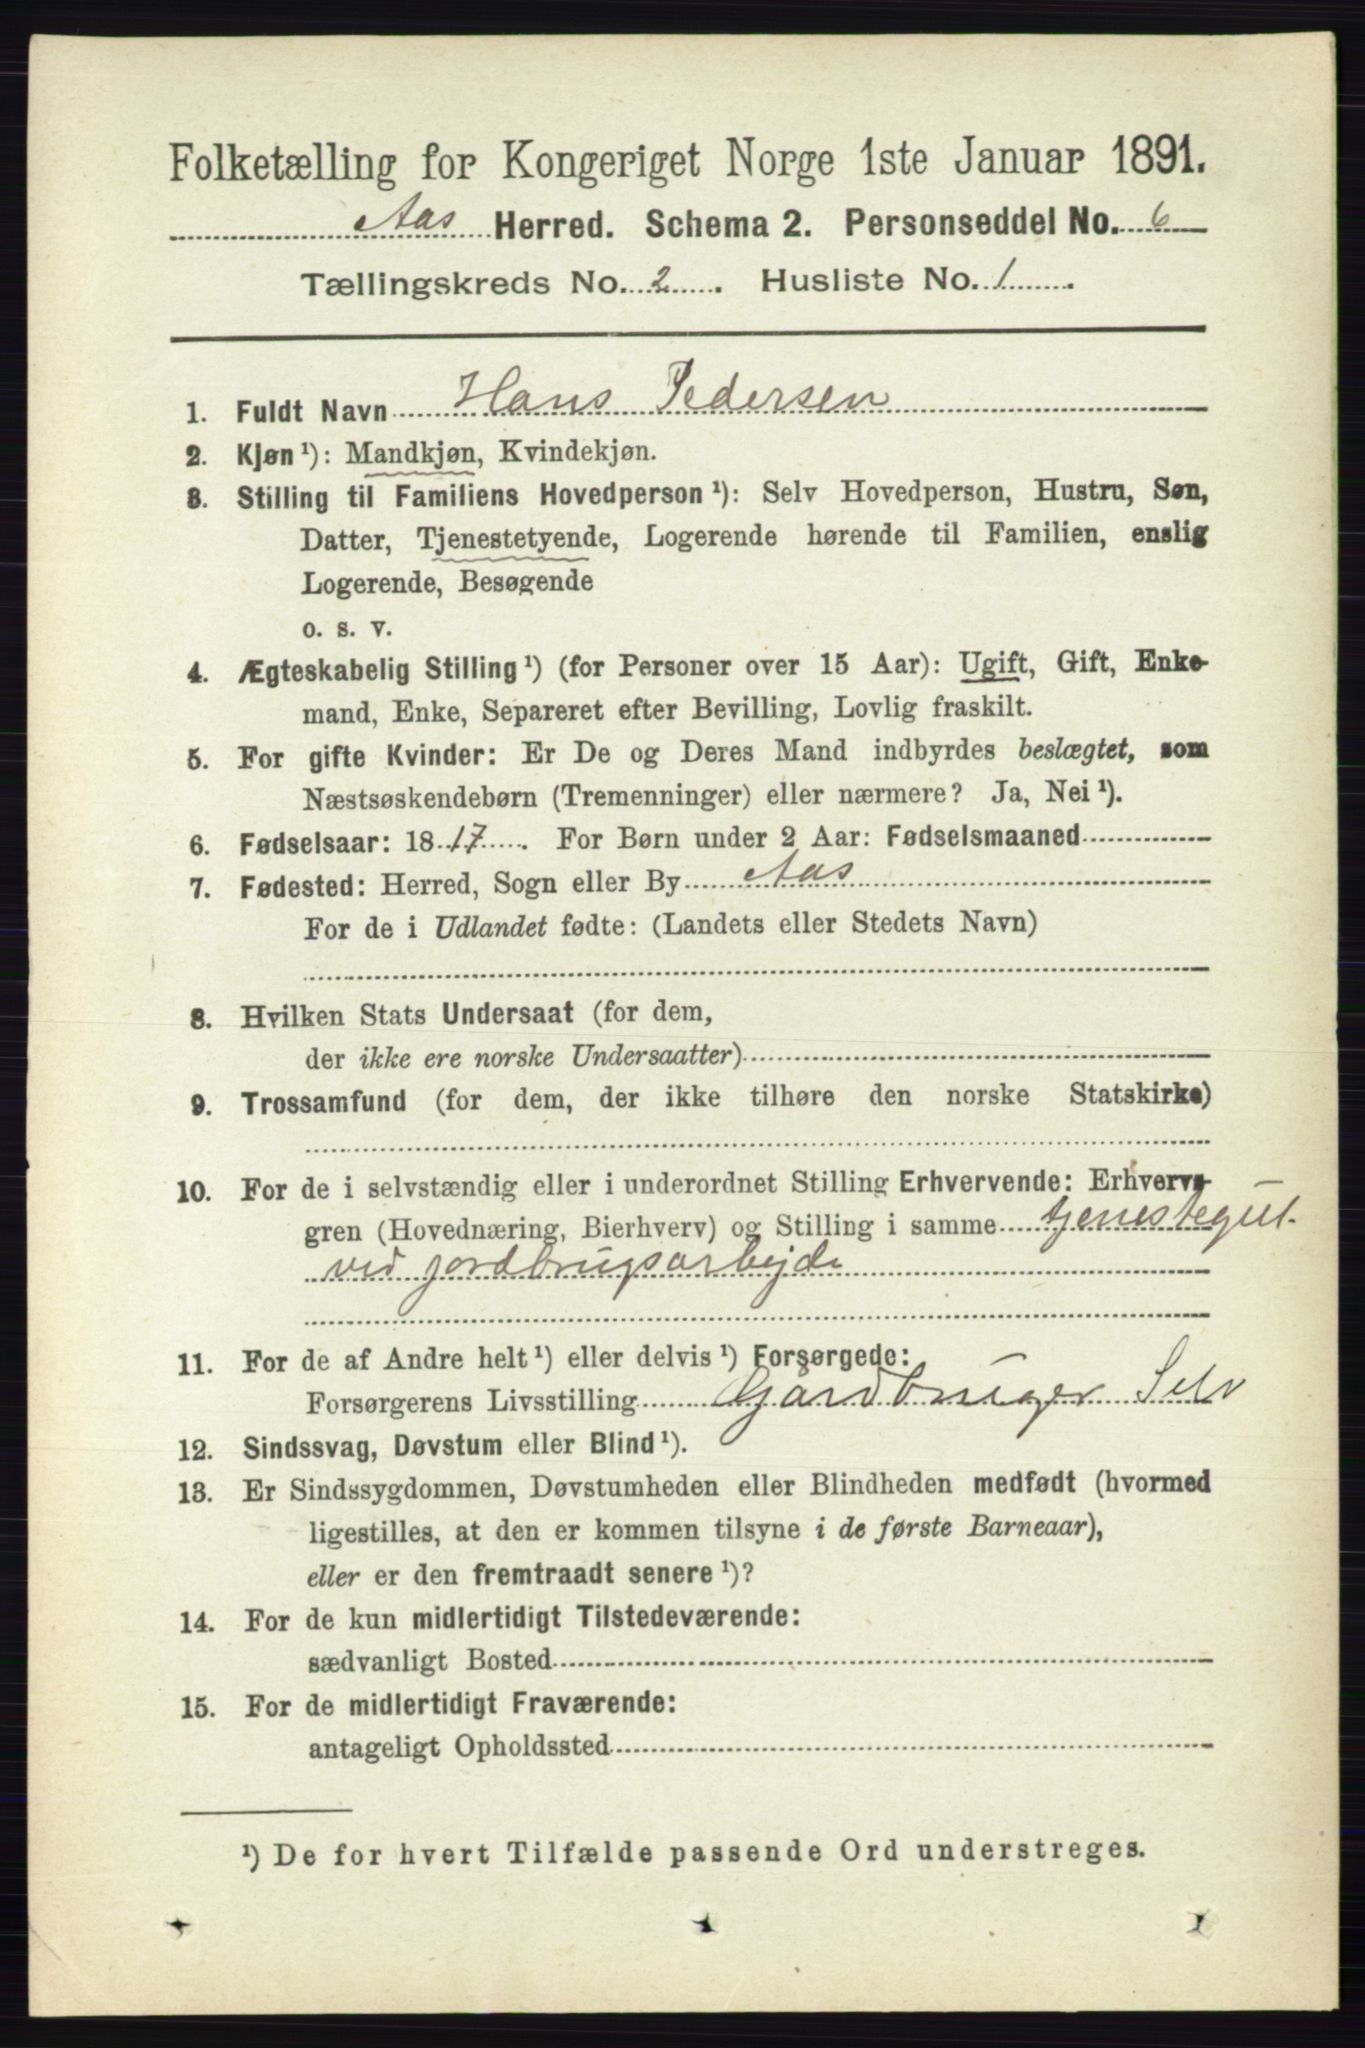 Folketælling for Kongeriget Norge 1ste Januar 1891.
Aas Herred. Schema 2. Personseddel No. 6
Tællingskreds No. 2. Husliste No. 1.
1. Fuldt Navn Hans Pedersen
2. Kjøn ¹): Mandkjøn, Kvindekjøn.
3. Stilling til Familiens Hovedperson ¹): Selv Hovedperson, Hustru, Søn,
Datter, Tjenestetyende, Logerende hørende til Familien, enslig
Logerende, Besøgende
o. s. v.
4. Ægteskabelig Stilling ¹) (for Personer over 15 Aar): Ugift, Gift, Enke-
mand, Enke, Separeret efter Bevilling, Lovlig fraskilt.
5. For gifte Kvinder: Er De og Deres Mand indbyrdes beslægtet, som
Næstsøskendebørn (Tremenninger) eller nærmere? Ja, Nei ¹).
6. Fødselsaar: 1817. For Børn under 2 Aar: Fødselsmaaned
7. Fødested: Herred, Sogn eller By Aas
For de i Udlandet fødte: (Landets eller Stedets Navn)
8. Hvilken Stats Undersaat (for dem,
der ikke ere norske Undersaatter)
9. Trossamfund (for dem, der ikke tilhøre den norske Statskirke)
10. For de i selvstændig eller i underordnet Stilling Erhvervende: Erhvervs-
gren (Hovednæring, Bierhverv) og Stilling i samme tjenestegut
ved jordbrugsarbejde
11. For de af Andre helt ¹) eller delvis ¹) Forsørgede:
Forsørgerens Livsstilling Gårdbruger Selv
12. Sindssvag, Døvstum eller Blind ¹).
13. Er Sindssygdommen, Døvstumheden eller Blindheden medfødt (hvormed
ligestilles, at den er kommen tilsyne i de første Barneaar),
eller er den fremtraadt senere ¹)?
14. For de kun midlertidigt Tilstedeværende:
sædvanligt Bosted
15. For de midlertidigt Fraværende:
antageligt Opholdssted
¹) De for hvert Tilfælde passende Ord understreges.